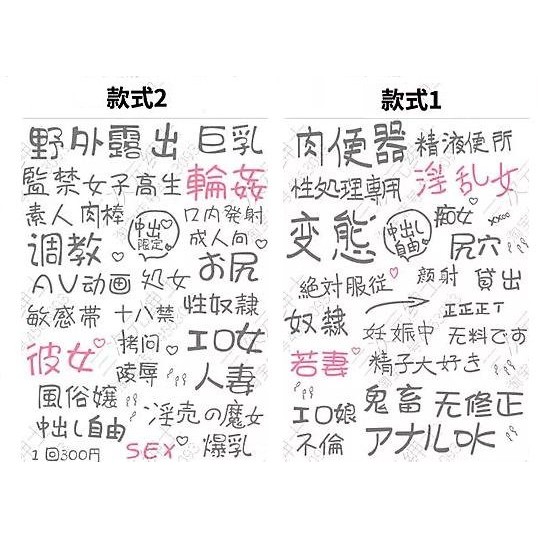 款式2
野外露出 巨乳
監禁女子高生 輪姦
素人 肉棒 中出し限定 口内発射
成人向
調教 お尻
AV动画 処女 性奴隷
敏感帯 十八禁
彼女 拷问 エロ女
陵辱 人妻
風俗嬢 淫売の魔女
中出し自由
1回300円 SEX 爆乳
款式1
肉便器 精液便所
性処理専用 淫乱女
変態 中出し自由 痴女
尻穴
絶対服従 顔射 貸出
奴隷 正正正T
妊娠中 无料です
若妻 精子大好き
エロ娘 鬼畜 无修正
不倫 アナルOK